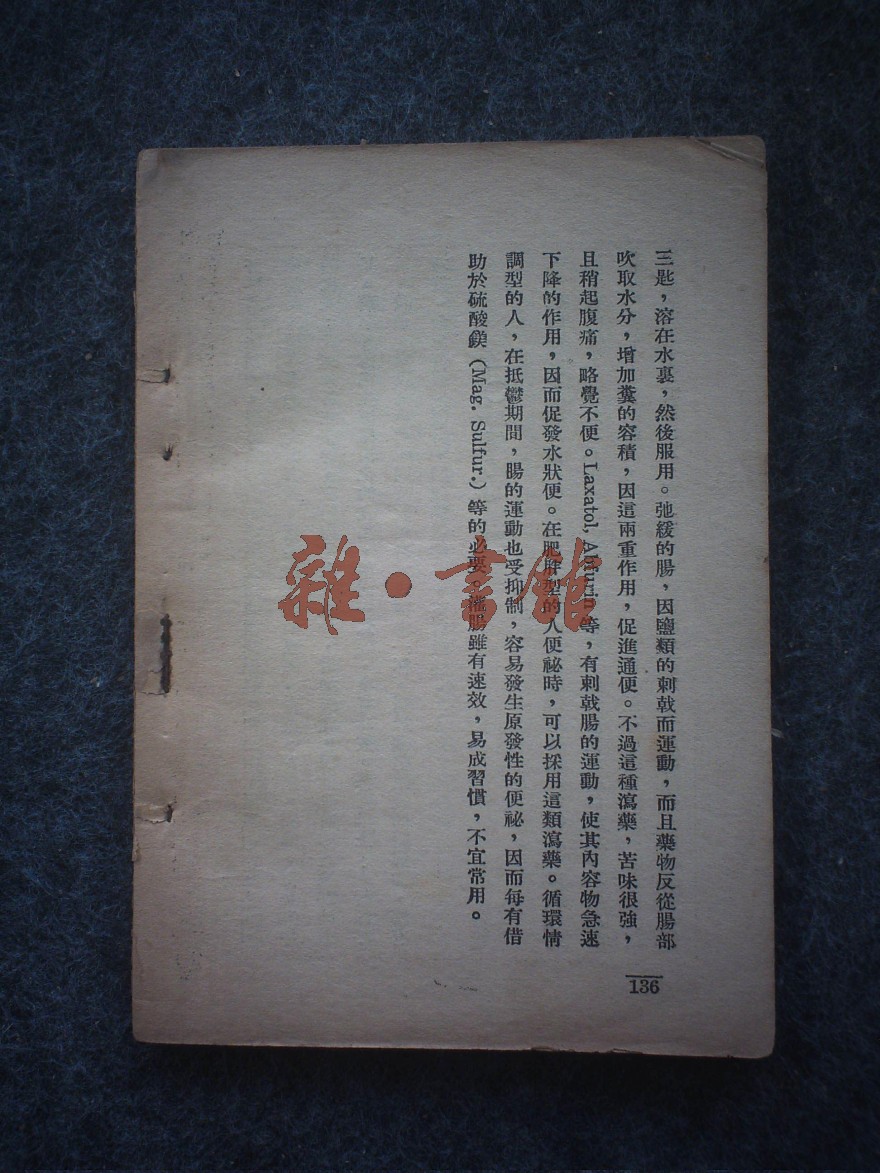 三匙，溶在水裏，然後服用。弛緩的腸，因鹽類的刺戟而運動，而且藥物反從腸部
吹取水分，增加糞的容積，因這兩重作用，促進通便。不過這種瀉藥，苦味很強，
且稍起腹痛，略覺不便。Laxatol, 等，有刺戟腸的運動，使其內容物急速
下降的作用，因而促發水狀便。在肥胖型的人便祕時，可以採用這類瀉藥。循環情
調型的人，在抵鬱期間，腸的運動也受抑制，容易發生原發性的便祕，因而每有借
助於硫酸鎂（Mag. Sulfur.）等的必要，灌腸雖有速效，易成習慣，不宜常用。
136
雜·書館